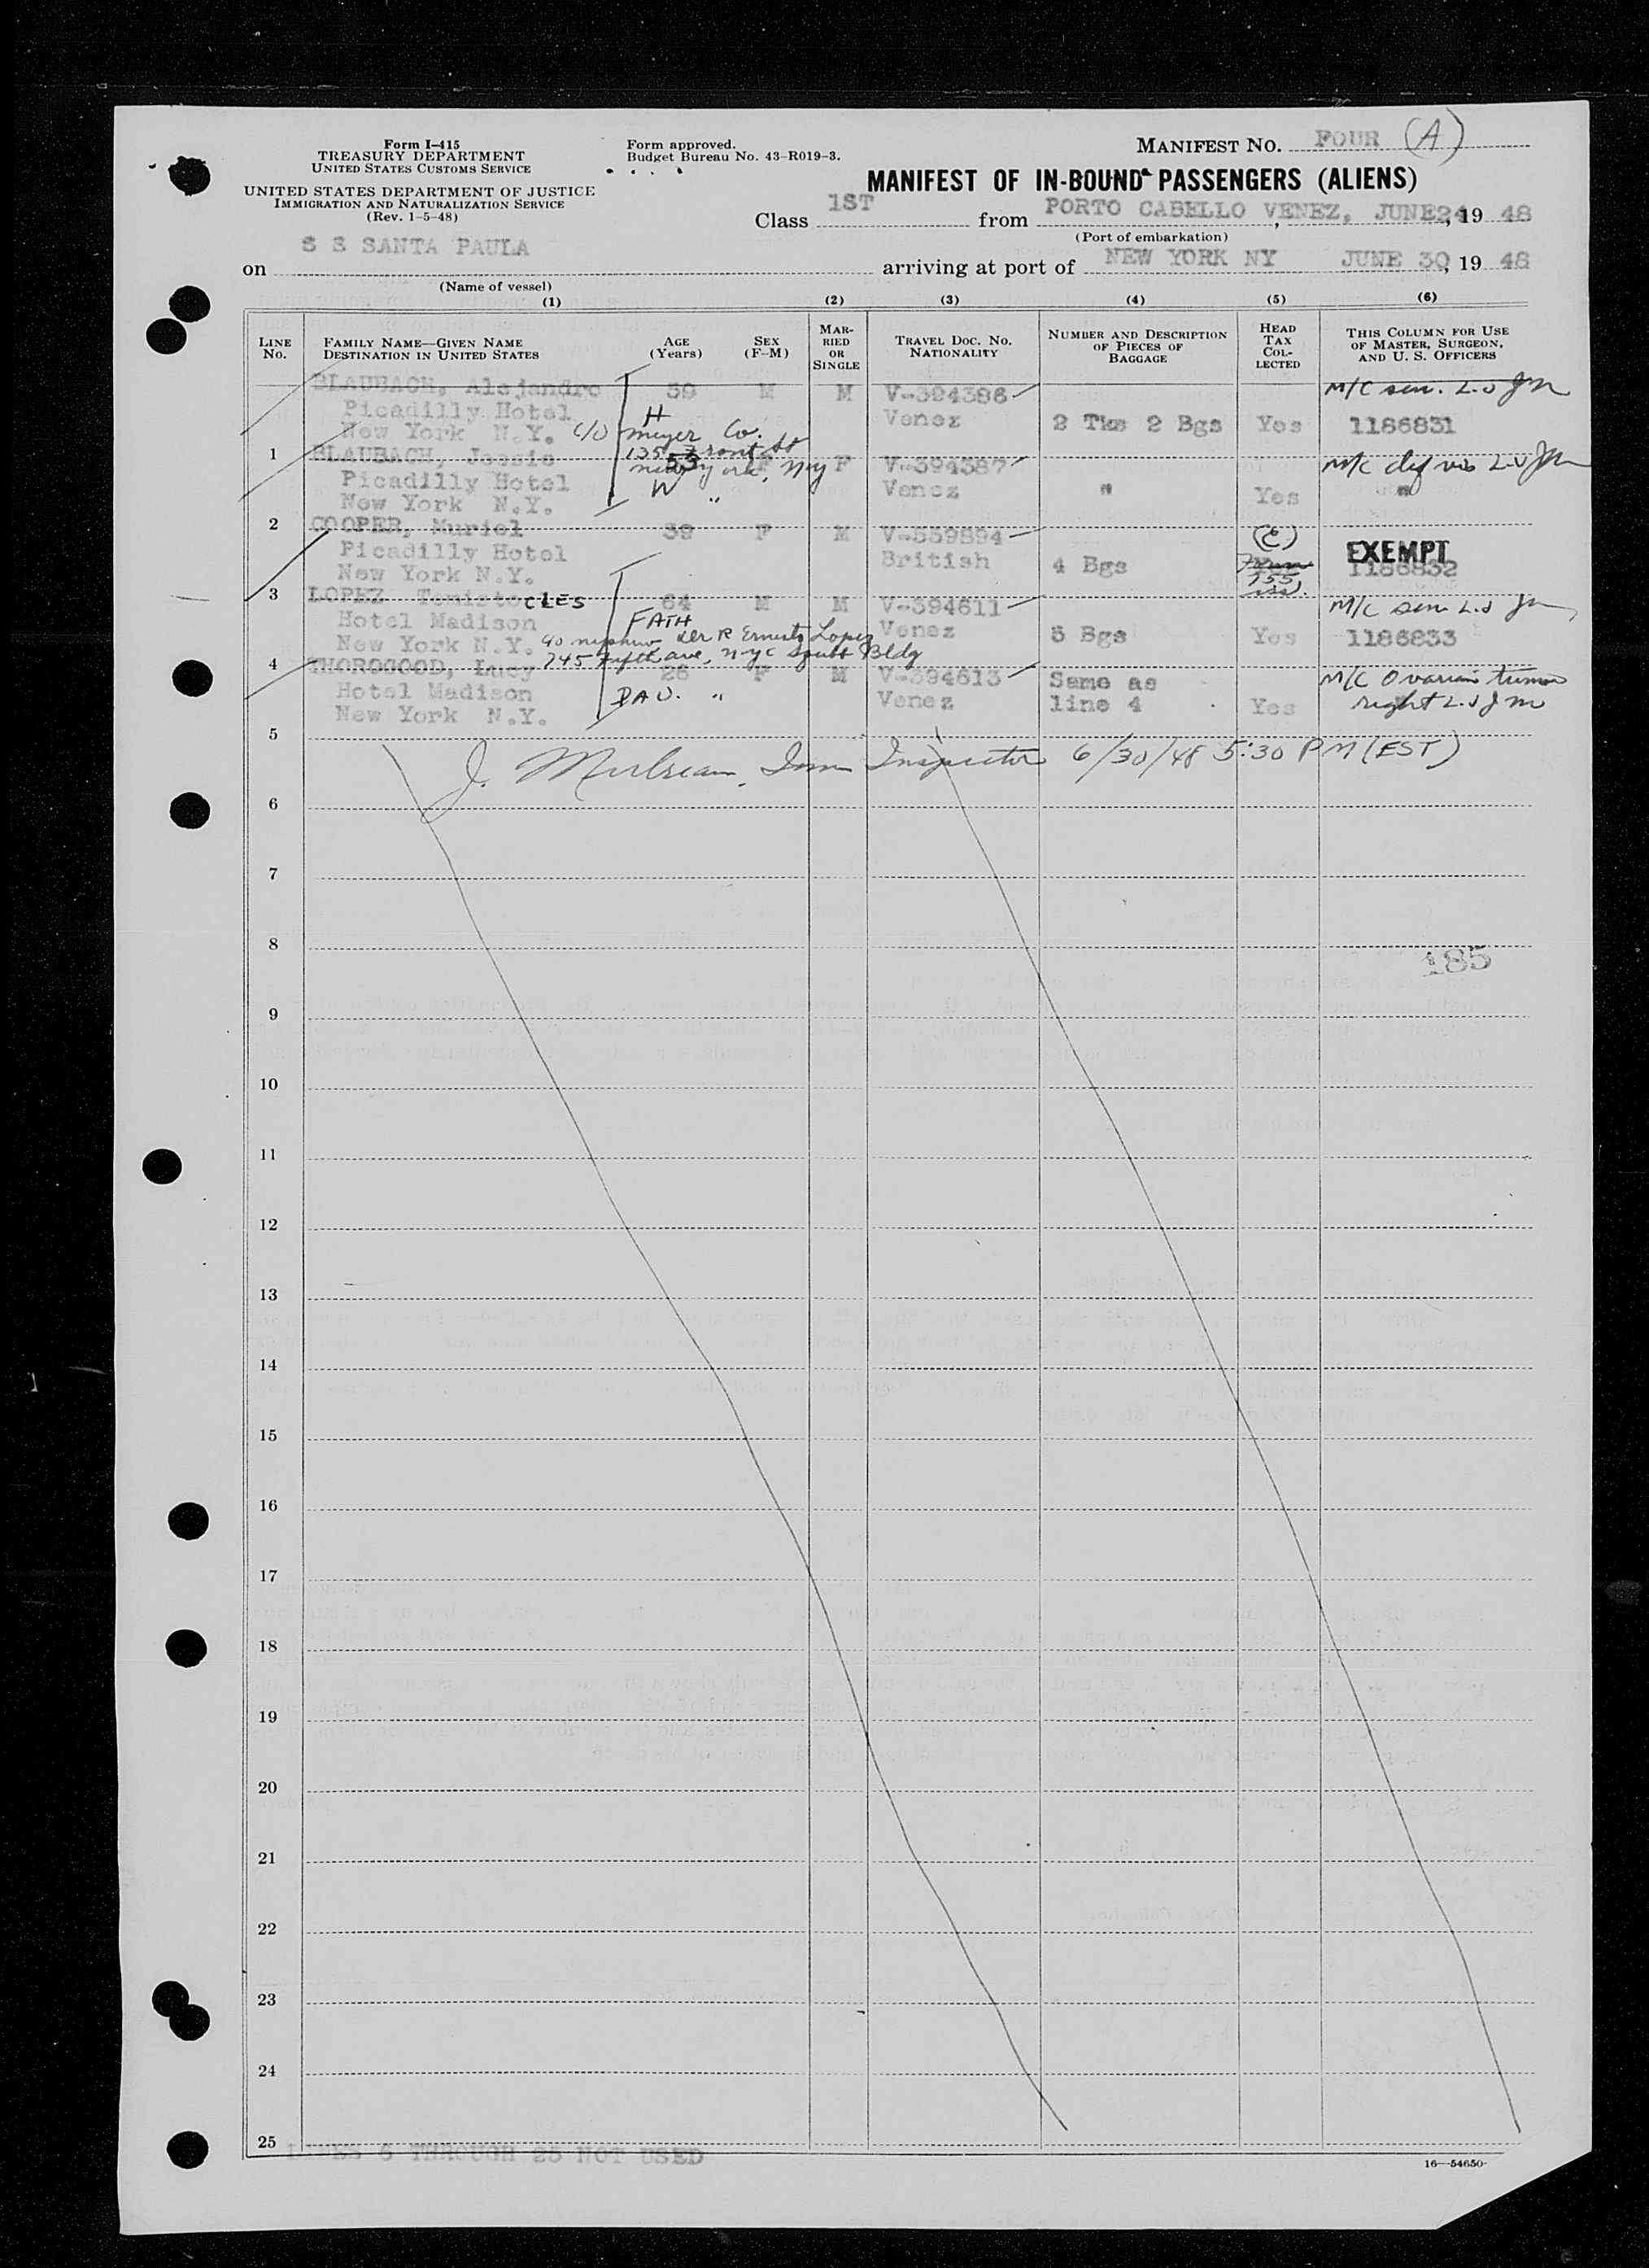 Form I-415
TREASURY DEPARTMENT
UNITED STATES CUSTOMS SERVICE
UNITED STATES DEPARTMENT OF JUSTICE
IMMIGRATION AND NATURALIZATION SERVICE
(Rev. 1-5-48)
Form approved.
Budget Bureau No. 43-R019-3.
MANIFEST NO. FOUR (A)
MANIFEST OF IN-BOUND PASSENGERS (ALIENS)
Class 1ST from PORTO CABELLO VENEZ, JUNE24, 19 48
(Port of embarkation)
on S S SANTA PAULA arriving at port of NEW YORK NY JUNE 30, 19 48
(Name of vessel)
(1) (2) (3) (4) (5) (6)
LINE NO. FAMILY NAME—GIVEN NAME DESTINATION IN UNITED STATES AGE (Years) SEX (F-M) MARRIED OR SINGLE TRAVEL DOC. NO. NATIONALITY NUMBER AND DESCRIPTION OF PIECES OF BAGGAGE HEAD TAX COLLECTED THIS COLUMN FOR USE OF MASTER, SURGEON, AND U. S. OFFICERS
BLAUBACH, Alejandro 59 M M V-394386 M/C sen. L.J JM
Picadilly Hotel H Venez 2 Tks 2 Bgs Yes 1186831
New York N.Y. C/O Meyer Co.
1 135 Front St
BLAUBACH, Jessie 53 F F V-394387 M/C def vis L.J JM
New York, NY
Picadilly Hotel W " Venez " Yes "
New York N.Y.
2
COOPER, Muriel 39 F M V-559894 (E)
Picadilly Hotel British 4 Bgs EXEMPT 1186832
New York N.Y. 155
3
LOPEZ Temistocles 64 M M V-394611 M/C sen L.J JM
Hotel Madison FATH Venez 5 Bgs Yes 1186833
New York N.Y. c/o nephew R Ernesto Lopez
4 745 Fifth ave, N-y-c Squibb Bldg
THOROGOOD, Lucy 26 F M V-394613 Same as line 4 M/C Ovarian tumor
Hotel Madison DAU. " Venez Yes right L.J JM
New York N.Y.
5
Imm Inspector 6/30/48 5:30 PM (EST)
6
7
8
185
9
10
11
12
13
14
15
16
17
18
19
20
21
22
23
24
25
LINES 6 THROUGH 25 NOT USED
16—54650-